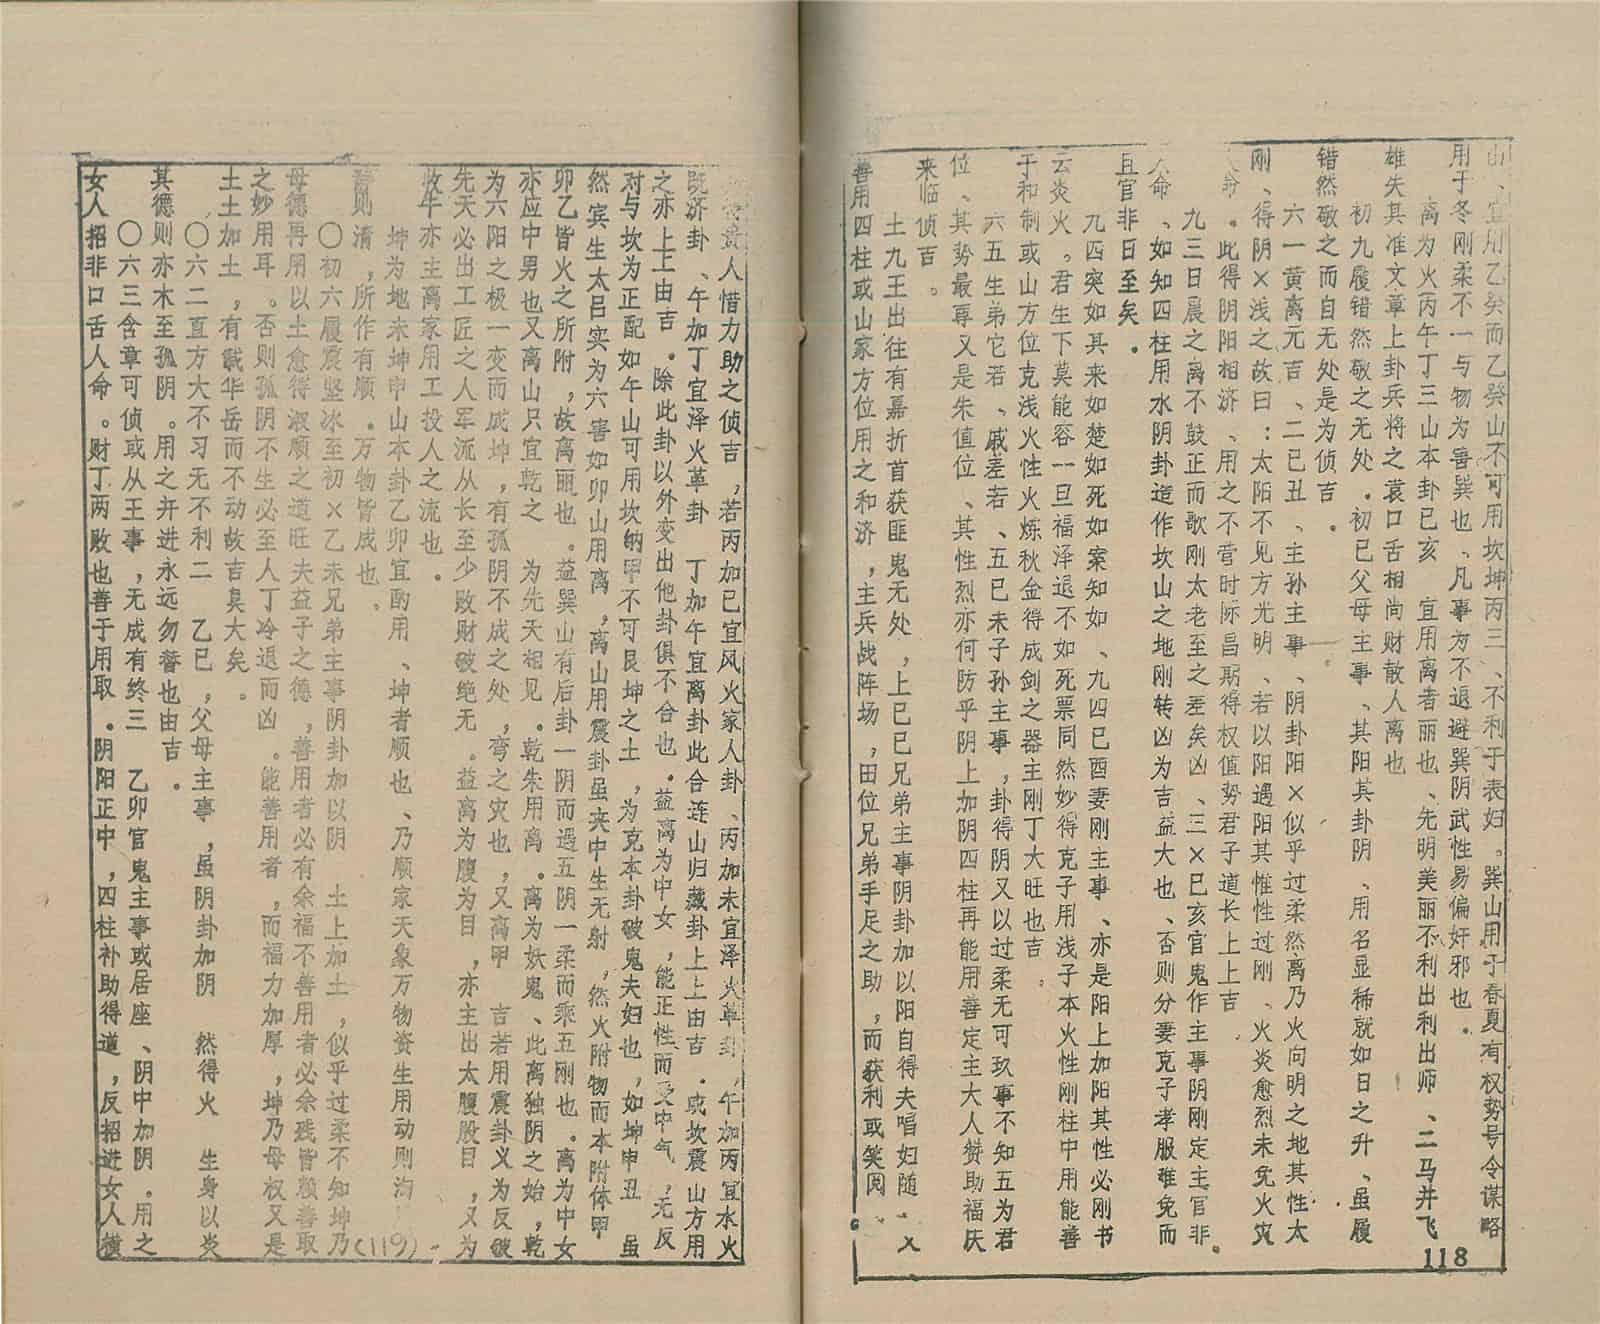 山、宜用乙癸而乙癸山不可用坎坤丙三、不利于表妇。巽山用于春夏有权势号令谋略
用于冬刚柔不一与物为害巽也、凡事为不退避巽阴武性易偏奸邪也。
离为火丙午丁三山本卦已亥 宜用离者丽也、先明美丽不利出利出师、二马并飞
雄失其准文章上卦兵将之哀口舌相尚财散人离也
初九履错然敬之无处.初已父母主事、其阳其卦阴、用名显稀就如日之升、虽履
错然敬之而自无处是为侦吉。
六一黄离元吉、二已丑、主孙主事、阴卦阳×似乎过柔然离乃火向明之地其性太
刚、得阴×浅之故曰:太阳不见方光明、若以阳遇阳其惟性过刚、火炎愈烈未免火灾
。此得阴阳相济、用之不营时际昌期得权值势君子道长上上吉
九三日晨之离不鼓正而歌刚太老至之差矣凶、三×已亥官鬼作主事阴刚定主官非
命、如知四柱用水阴卦造作坎山之地刚转凶为吉益大也、否则分妻克子孝服难免而
且官非日至矣.
九四突如其来如楚如死如案知如、九四已酉妻刚主事、亦是阳上加阳其性必刚书
云炎火。君生下莫能容一旦福泽退不如死票同然妙得克子用浅子本火性刚柱中用能善
于和制或山方位克浅火性火炼秋金得成剑之器主刚丁大旺也吉。
六五生弟它若、戚差若、五已未子孙主事,卦得阴又以过柔无可玖事不知五为君
位、其势最尊又是朱值位、其性烈亦何防乎阴上加阴四柱再能用善定主大人赞助福庆
来临侦吉。
土九王出往有嘉折首获匪鬼无处,上已已兄弟主事阴卦加以阳自得夫唱妇随、乂
善用四柱或山家方位用之和济,主兵战阵场,田位兄弟手足之助,而获利或笑阅
118
贵人惜力助之侦吉,若丙加已宜风火家人卦、丙加未宜泽火革卦,午加丙宜水火
既济卦、午加丁宜泽火革卦 丁加午宜离卦此合连山归藏卦上上由吉.或坎震山方用
之亦上上由吉.除此卦以外变出他卦俱不合也.益离为中女,能正性而受中气,无反
对与坎为正配如午山可用坎纳甲不可艮坤之土,为克本卦破鬼夫妇也,如坤申丑 虽
然宾生太吕实为六害如卯山用离,离山用震卦虽夹中生无射,然火附物而本附体甲
卯乙皆火之所附,故离丽也。益巽山有后卦一阴而遇五阴一柔而乘五刚也.离为中女
亦应中男也又离山只宜乾之 为先天相见.乾朱用离。离为妖鬼、此离独阴之始,乾
为六阳之极一变而成坤,有孤阴不成之处,弯之灾也,又离甲 吉若用震卦义为反破
先天必出工匠之人军流从长至少败财破绝无。益离为腹为目,亦主出太腹股目,又为
收牛亦主离家用工投人之流也.
坤为地未坤申山本卦乙卯宜酌用、坤者顺也、乃顺家天象万物资生用动则沟
则清,所作有顺.万物皆成也、
〇初六履震坚冰至初×乙未兄弟主事阴卦加以阴 土上加土,似乎过柔不知坤乃
母德再用以土愈得淑顺之道旺夫益子之德,善用者必有余福不善用者必余残皆愿善取
之妙用耳。否则孤阴不生必至人丁冷退而凶。能善用者,而福力加厚,坤乃母权又是
土土加土,有赋华岳而不动故吉臭大矣。
〇六二直方大不习无不利二 乙已,父母主事,虽阴卦加阴 然得火 生身以炎
其德则亦木至孤阴。用之并进永远勿替也由吉。
〇六三含章可侦或从王事,无成有终三 乙卯官鬼主事或居座、阴中加阴.用之
女人招非口舌人命。财丁两败也善于用取.阴阳正中,四柱补助得道,反招进女人横
(119)